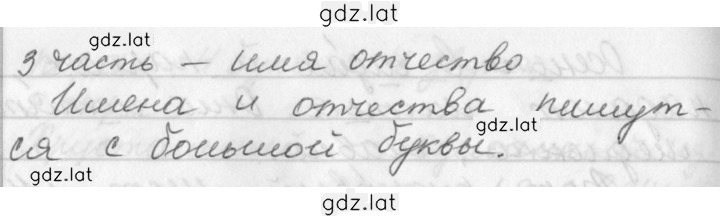 gdz.lat
gdz.lat
3 часть – имя отчество
Имена и отчества пишут-
gdz.lat
ся с большой буквы.
gdz.lat
gdz.lat